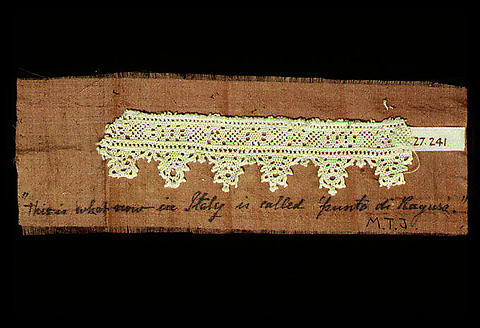 27.241
"This is what now in Italy is called 'punto di Ragusi'."
M.T.J.